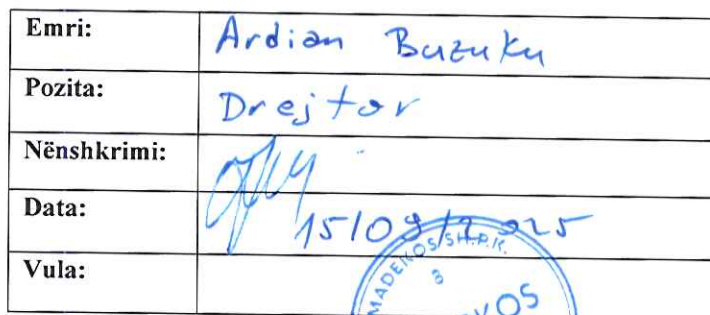 Emri: Ardian Buzuku
Pozita: Drejtor
Nënshkrimi:
Data: 15/09/2025
Vula:
MADEKOS SH.P.K.
3